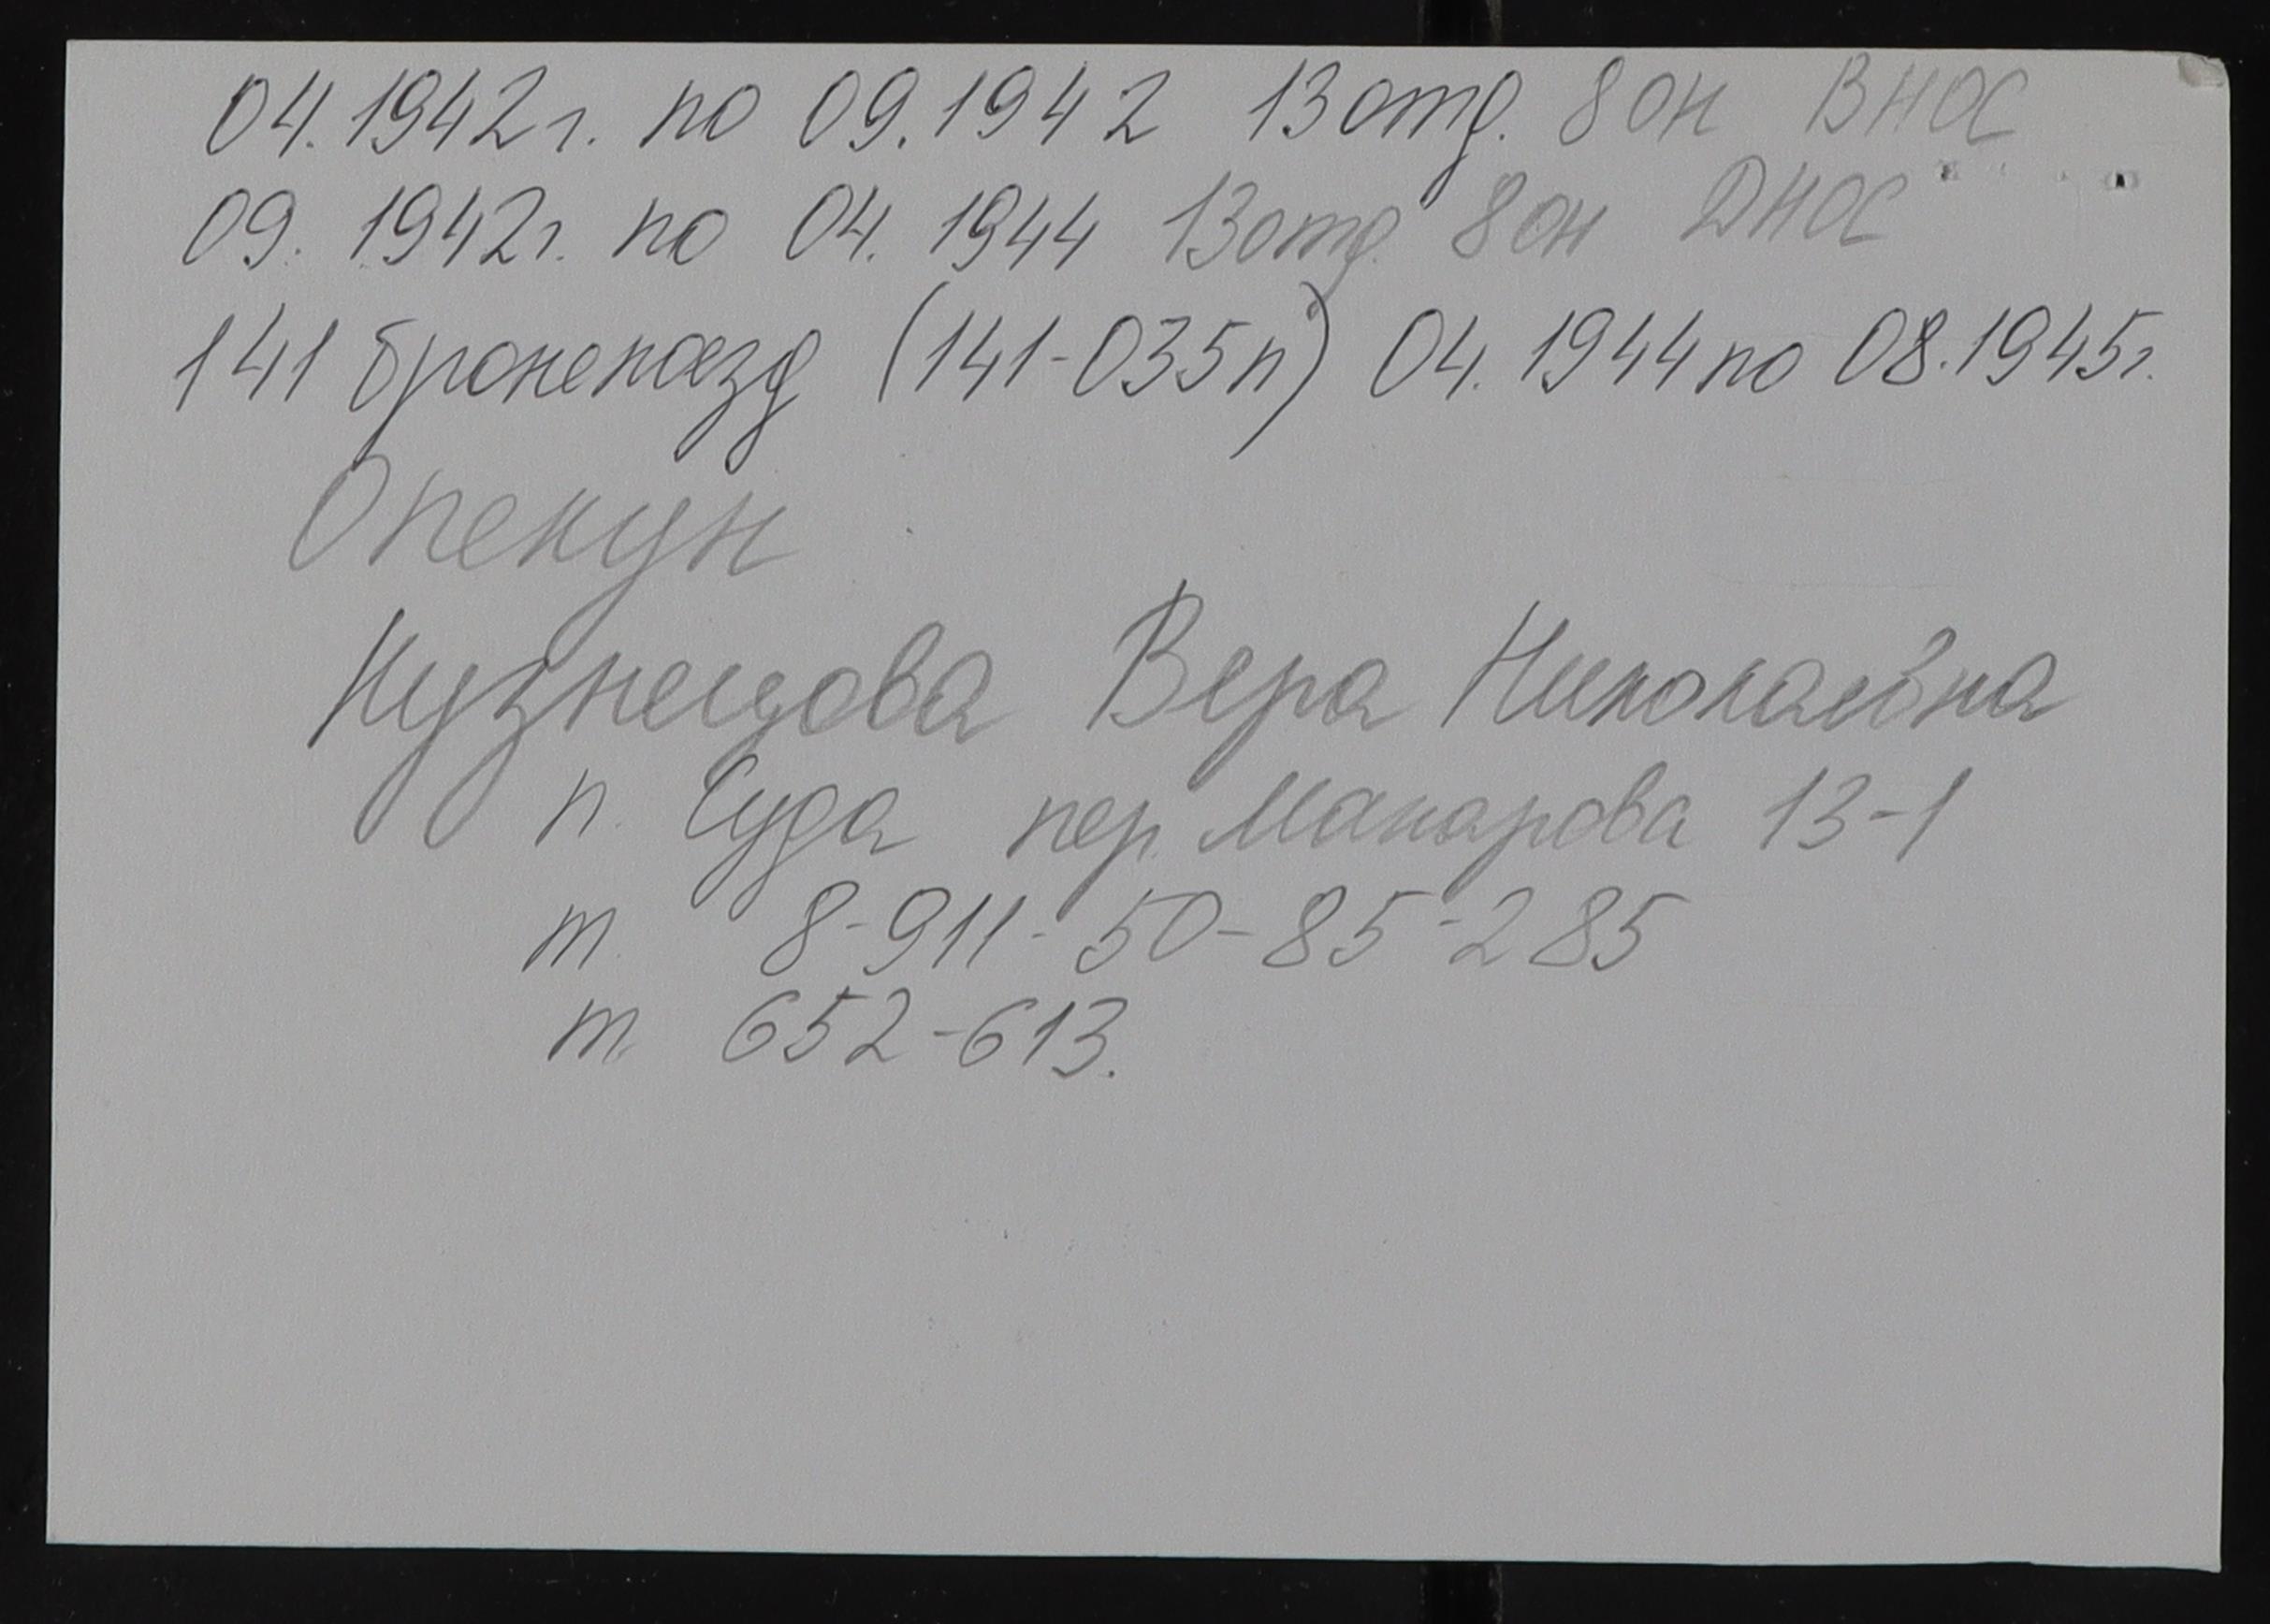 04.1942г. по 09.1942 13 отд. 8 ОН ВНОС
09. 1942г. по 04. 1944 13 отд. 8 ОН ДНОС
141 бронепоезд (141-ОЗБп) 04. 1944 по 08.1945г.
Опекун
Кузнецова Вера Николаевна
п. Суда пер. Макарова 13-1
т. 8-911-50-85-285
т. 652-613.